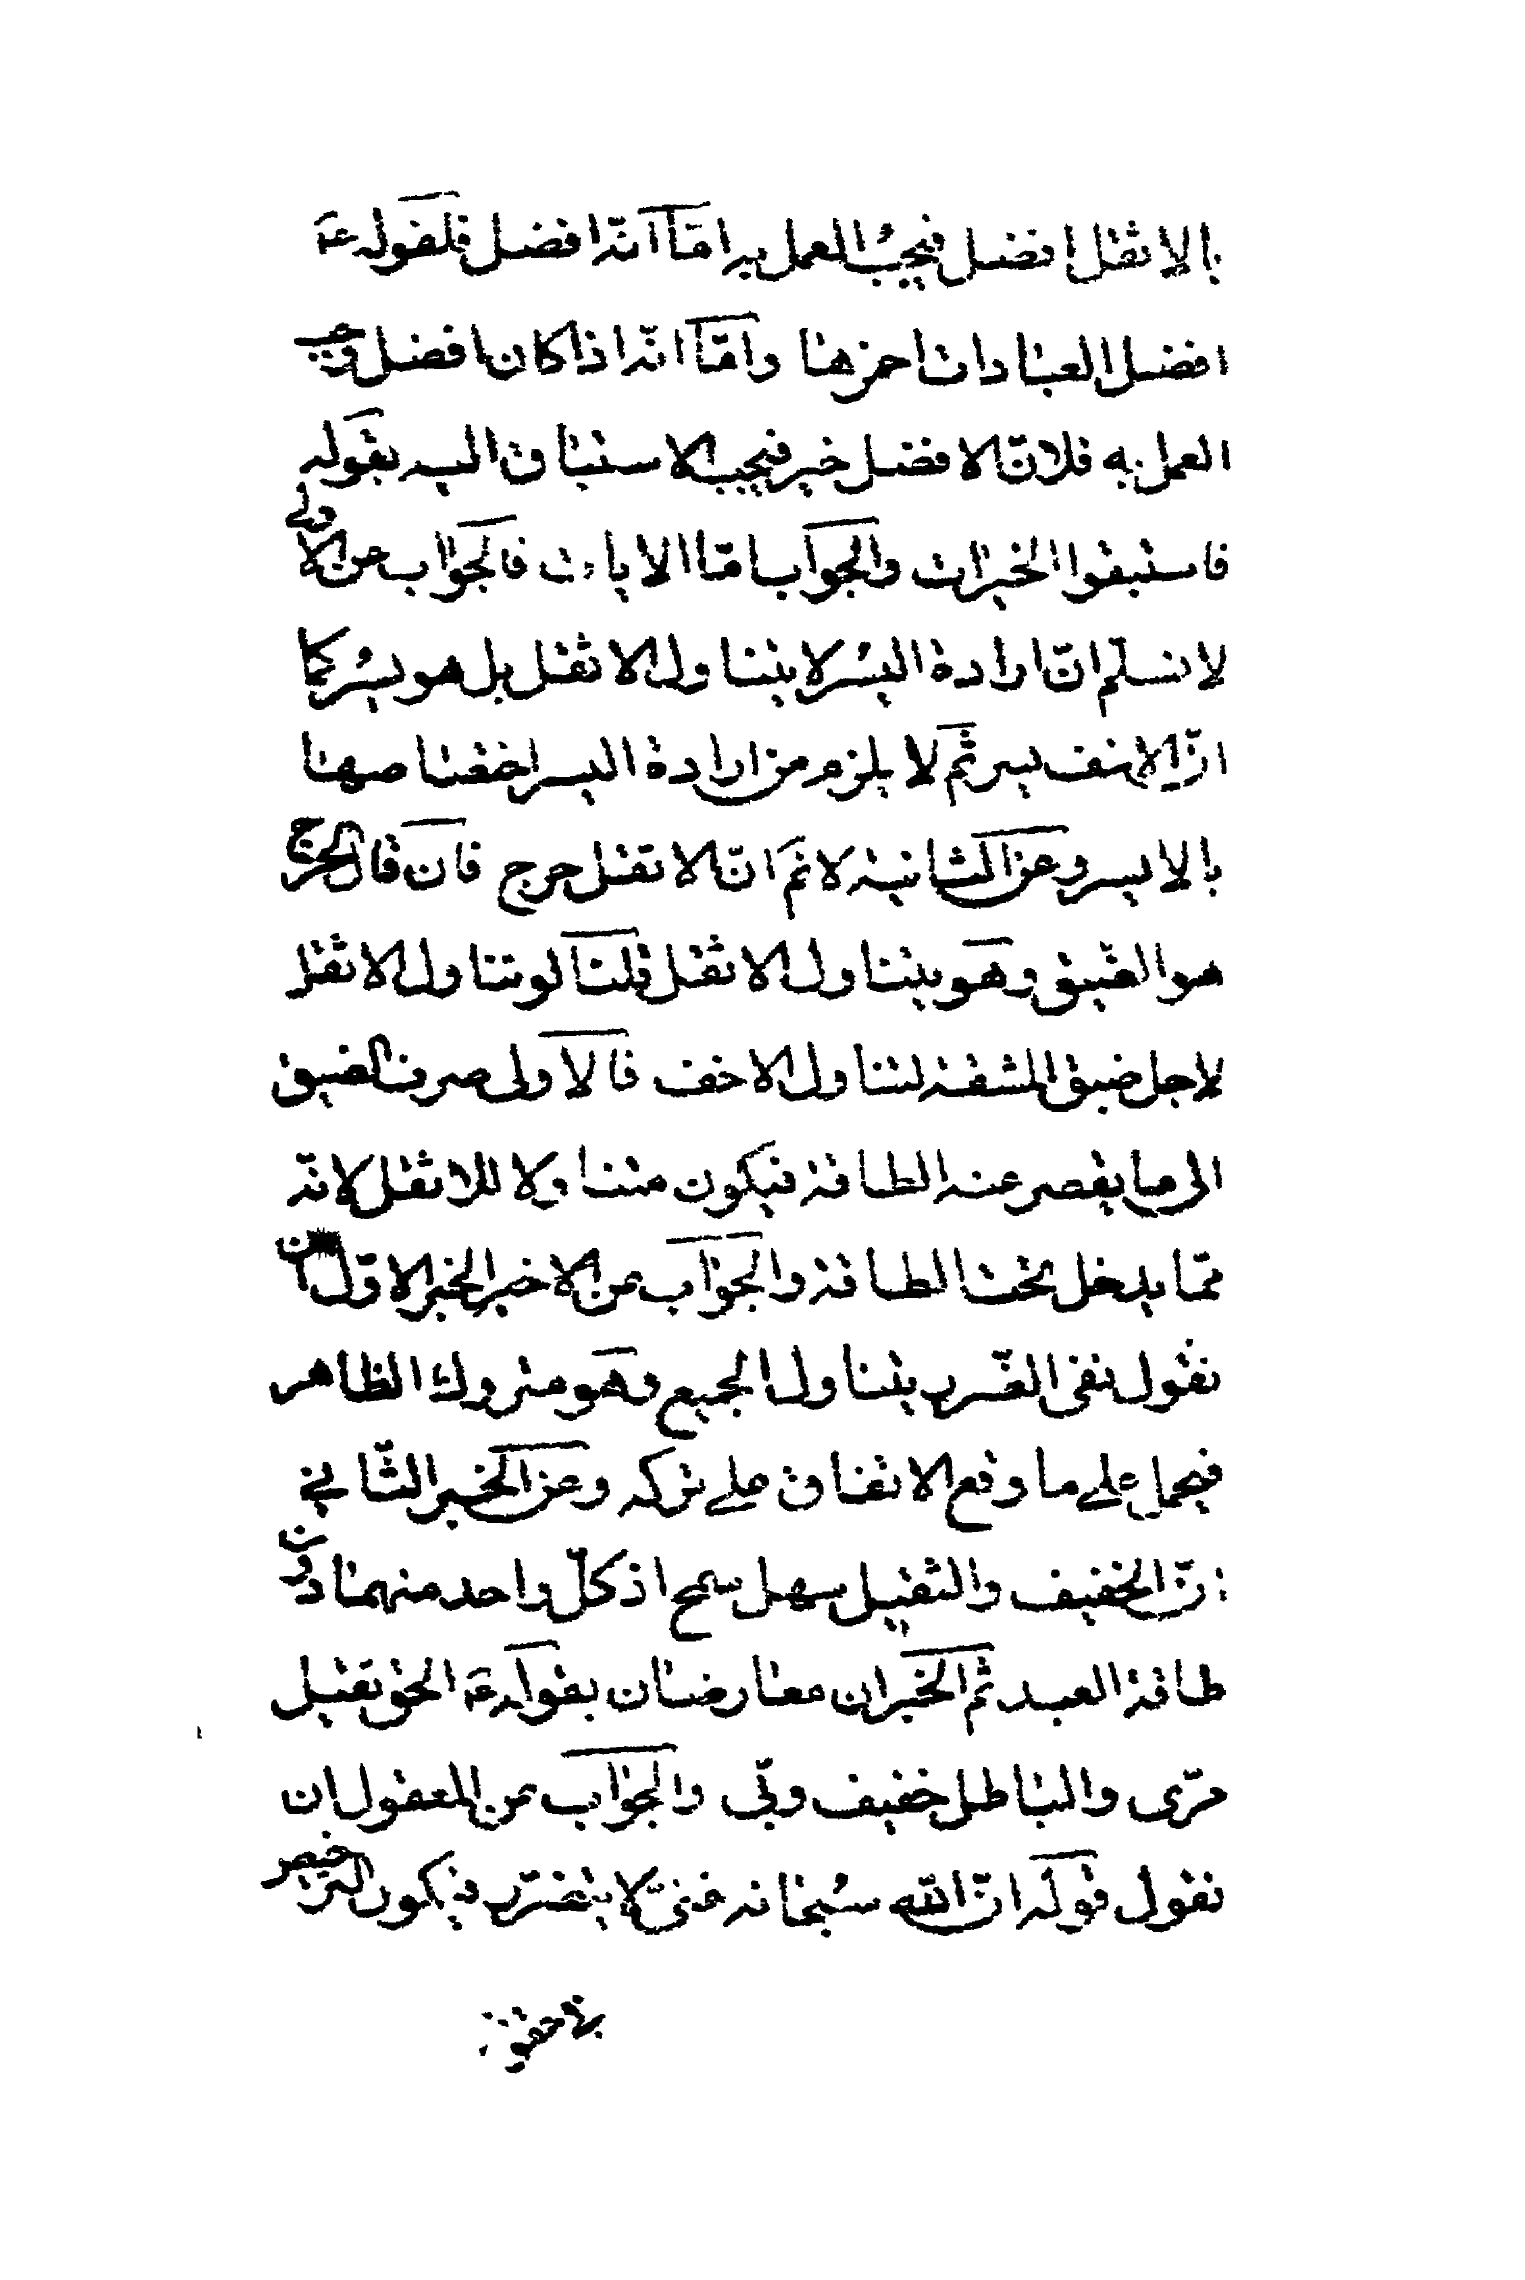 بالاثقل افضل فيجب العمل به امّا انّه افضل فلقوله عم
افضل العبادات احمزها وامّا انّه اذا كان افضل وجب
العمل به فلانّ الافضل خير فيجب الاستباق اليه بقوله
فاستبقوا الخيرات والجواب امّا الايات فالجواب عن الاولى
لا نسلّم انّ ارادة اليُسر لا يتناول الاثقل بل هو يُسر كما
انّ الاخف يسر ثمّ لا يلزم من ارادة اليسر اختصاصها
بالايسر وعن الثانية لا ثمّ انّ الاثقل حرج فان قال الحرج
هو الضّيق وهو يتناول الاثقل قلنا لو تناول الاثقل
لاجل ضيق المشقة لتناول الاخف فالاولى صرف الضيق
الى ما يقصر عنه الطاقة فيكون متناولا للاثقل لانّه
ممّا يدخل تحت الطاقة والجواب عن الاخير الخبر الاوّل ان
نقول نفى الضّرر يتناول الجميع وهو متروك الظاهر
فيحمل على ما وقع الاتفاق على تركه وعن الخبر الثّانى
انّ الخفيف والثقيل سهل سمح اذ كلّ واحد منهما دون
طاقة العبد ثمّ الخبران معارضان بقوله عم الحق ثقيل
مرّى والباطل خفيف وبّى والجواب عن المعقول ان
نقول قوله انّ اللّه سُبحانه غنىّ لا يتضرّر فيكون الترخيص